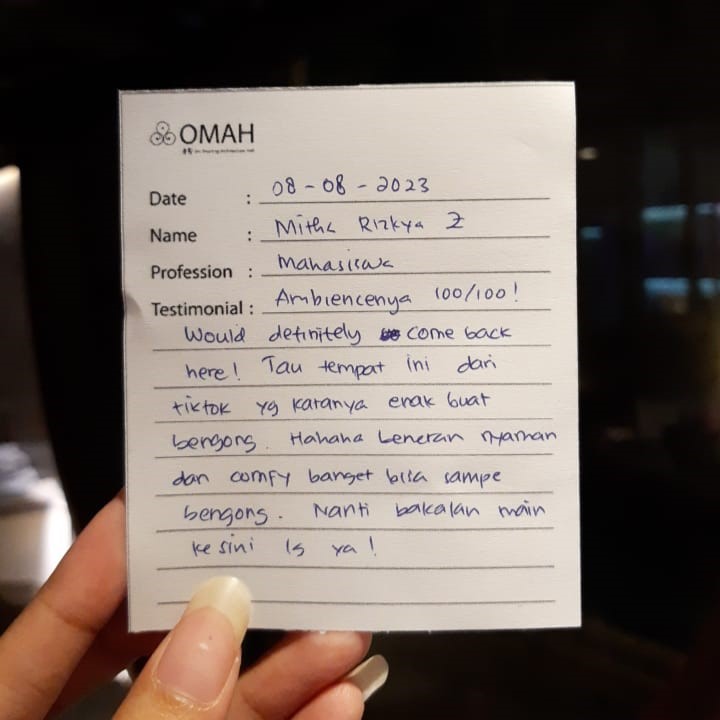 OMAH
Date : 08 - 08 - 2023
Name : Mitha Rizkya Z
Profession : Mahasiswa
Testimonial : Ambiencenya 100/100!
Would definitely come back
here! Tau tempat ini dari
tiktok yg katanya enak buat
bengong. Hahaha beneran nyaman
dan comfy banget bisa sampe
bengong. Nanti bakalan main
ke sini lg ya!